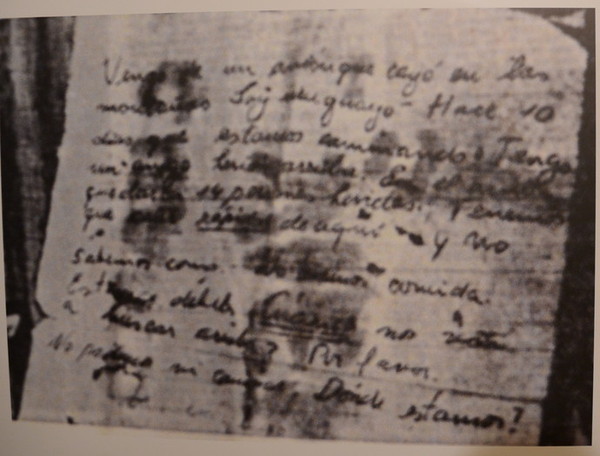 Vengo de un avión que cayó en las
montañas Soy uruguayo Hace 10
días que estamos caminando. Tengo
un amigo herido arriba. En el avión
quedaron 14 personas heridas. Tenemos
que salir rápido de aquí y no
sabemos como. No tenemos comida.
Estamos débiles Cuándo nos van
a buscar arriba? Por favor.
No podemos ni caminar. Dónde estamos?